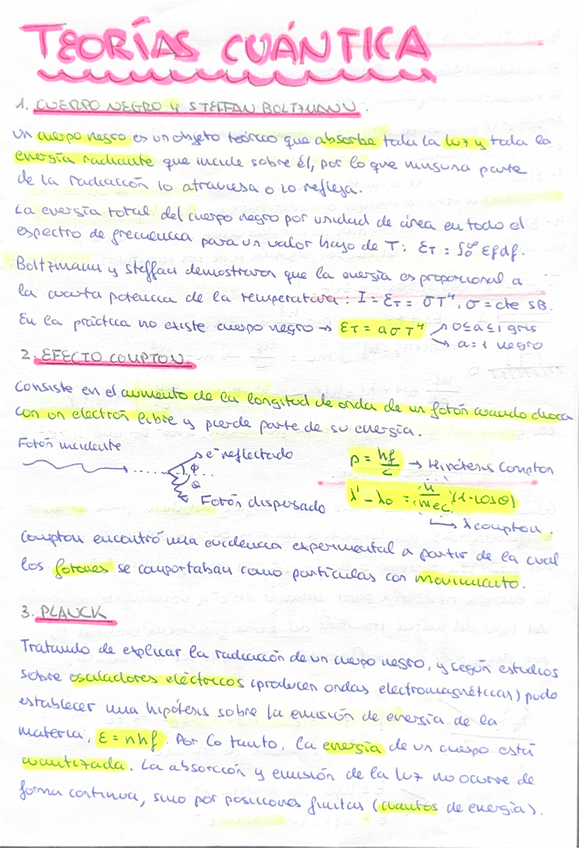 TEORÍAS CUÁNTICA
1. CUERPO NEGRO Y STEFFAN BOLTZMANN:
Un cuerpo negro es un objeto teórico que absorbe toda la luz y toda la
energía radiante que incide sobre él, por lo que ninguna parte
de la radiación lo atraviesa o lo refleja.
La energía total del cuerpo negro por unidad de área en todo el
espectro de frecuencia para un valor bajo de T: ET = ∫₀^∞ Ef df.
Boltzmann y Steffan demostraron que la energía es proporcional a
la cuarta potencia de la temperatura: I = ET = σT⁴, σ = cte SB.
En la práctica no existe cuerpo negro → ET = aσT⁴ → 0≤a≤1 gris
→ a=1 negro
2. EFECTO COMPTON.
Consiste en el aumento de la longitud de onda de un fotón cuando choca
con un electrón libre y pierde parte de su energía.
Fotón incidente
e⁻ reflectado
φ
θ
Fotón dispersado
p = hf/c → Hipótesis Compton
λ' - λ₀ = h/mec (1-cosθ)
→ λ compton.
Compton encontró una evidencia experimental a partir de la cual
los fotones se comportaban como partículas con movimiento.
3. PLANCK
Tratando de explicar la radiación de un cuerpo negro, y según estudios
sobre osciladores eléctricos (producen ondas electromagnéticas) pudo
establecer una hipótesis sobre la emisión de energía de la
materia, E = nhf. Por lo tanto, la energía de un cuerpo está
cuantizada. La absorción y emisión de la luz no ocurre de
forma continua, sino por posiciones finitas (cuantos de energía).